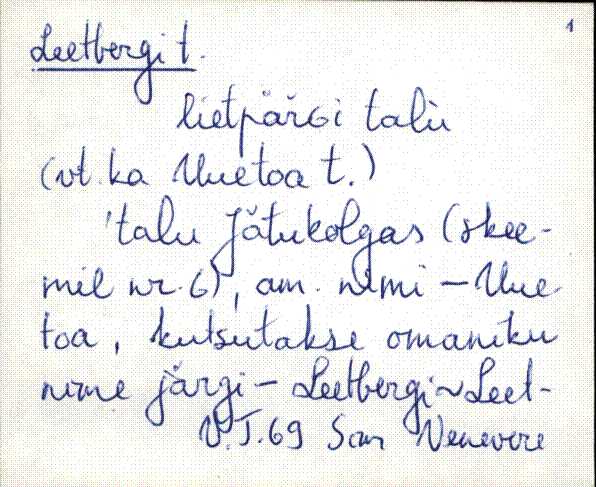 1
Leetbergi t.
lietpär̆gi talu̇
(vt. ka Uuetoa t.)
'talu Jätukolgas (skee-
mil nr. 6), am. nimi – Uue-
toa, kutsutakse omaniku
nime järgi – Leetbergi ~ Leet-
V.T.69 Sim Venevere